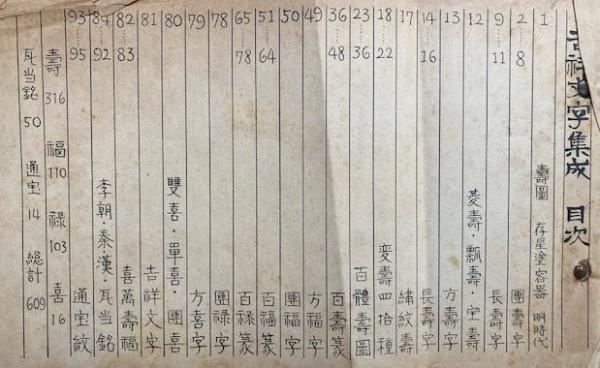 吉祥文字集成 目次
1 壽圖 存星塗容器 明時代
2…8 團壽字
9…11 長壽字
12 菱壽・瓢壽・宝壽
13 方壽字
14…16 長壽字
17 繍紋壽
18…22 変壽四拾種
23…36 百體壽圖
36…48 百壽篆
49 方福字
50 團福字
51…64 百福篆
65…78 百禄篆
78 團禄字
79 方喜字
80 雙喜・單喜・團喜
81 吉祥文字
82…83 喜萬壽福
84…92 李朝・秦漢・瓦当銘
93…95 通宝紋
壽316 福110 禄103 喜16
瓦当銘 50 通宝 14 総計 609